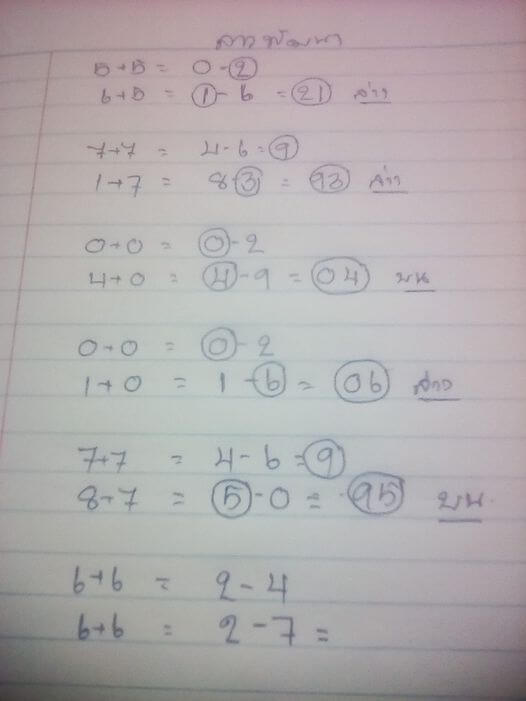 ลาวพัฒนา
5+5 = 0-2
6+5 = 1-6 = 21 ล่าง
7+7 = 4-6 = 9
1+7 = 8-3 = 93 ล่าง
0+0 = 0-2
4+0 = 4-9 = 04 บน
0+0 = 0-2
1+0 = 1-6 = 06 ล่าง
7+7 = 4-6 = 9
8+7 = 5-0 = 95 บน
6+6 = 2-4
6+6 = 2-7 =